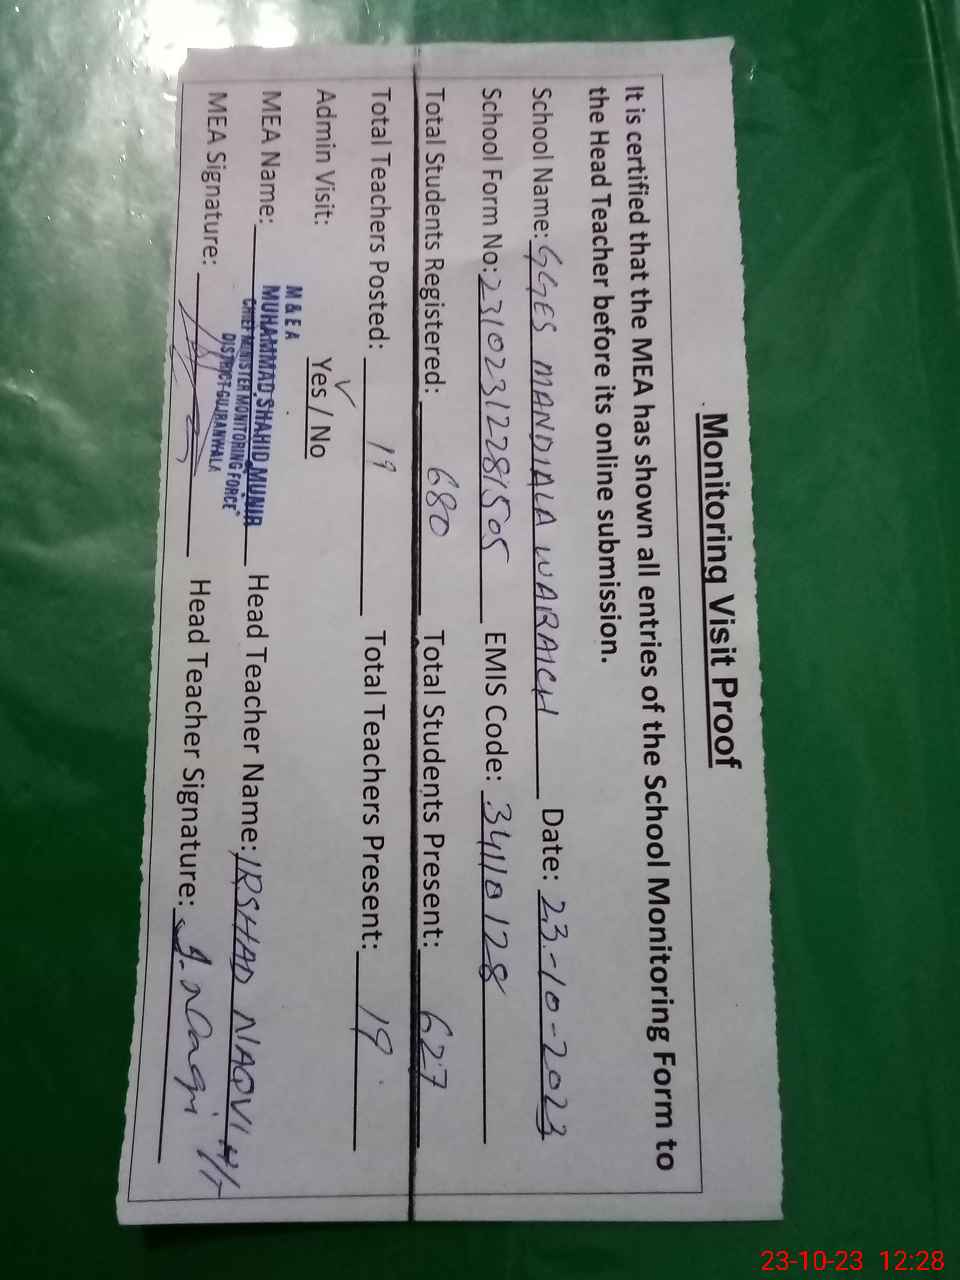 Monitoring Visit Proof
It is certified that the MEA has shown all entries of the School Monitoring Form to
the Head Teacher before its online submission.
School Name: GGES MANDIALA WARAICH Date: 23-10-2023
School Form No: 23102312281505 EMIS Code: 34110128
Total Students Registered: 680 Total Students Present: 627
Total Teachers Posted: 19 Total Teachers Present: 19
Admin Visit: Yes / No
M & E A
MEA Name: MUHAMMAD SHAHID MUNIR Head Teacher Name: IRSHAD NAQVI H/T
CHIEF MINISTER MONITORING FORCE
DISTRICT GUJRANWALA
MEA Signature: Head Teacher Signature: I. Naqvi
23-10-23 12:28